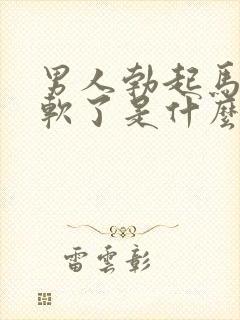 男人勃起馬
軟了是什麼
雷雲彰